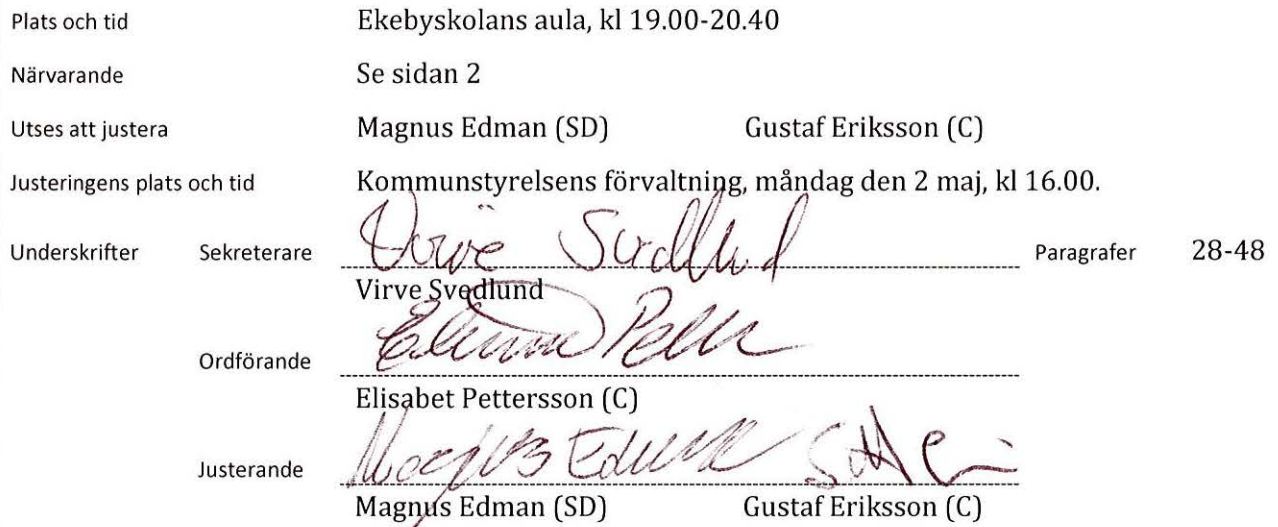 Plats och tid Ekebyskolans aula, kl 19.00-20.40
Närvarande Se sidan 2
Utses att justera Magnus Edman (SD) Gustaf Eriksson (C)
Justeringens plats och tid Kommunstyrelsens förvaltning, måndag den 2 maj, kl 16.00.
Underskrifter Sekreterare Virve Svedlund Paragrafer 28-48
Virve Svedlund
Ordförande
Elisabet Pettersson (C)
Justerande Magnus Edman
Magnus Edman (SD) Gustaf Eriksson (C)